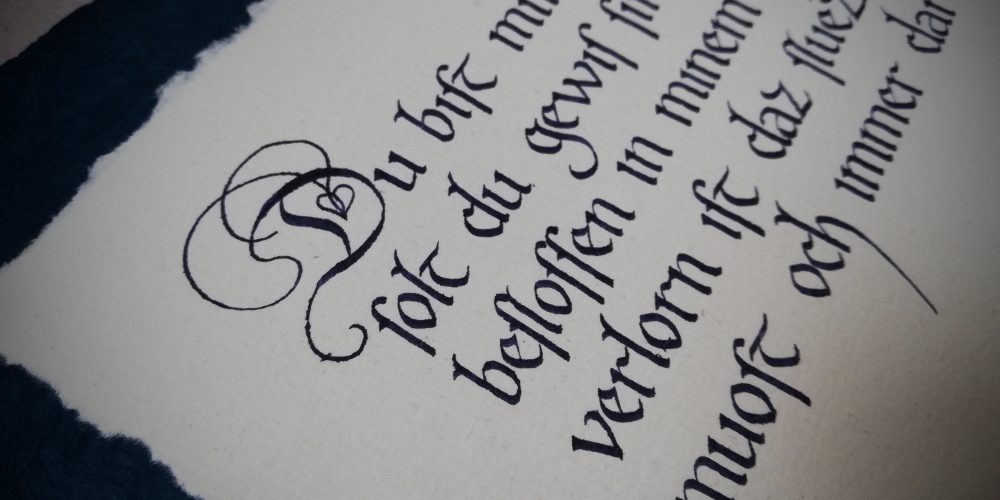 Du biſt min
ſolt du gewiſ ſin
beſloſſen in minem
verlorn iſt daz ſluez
muoſt och immer dar